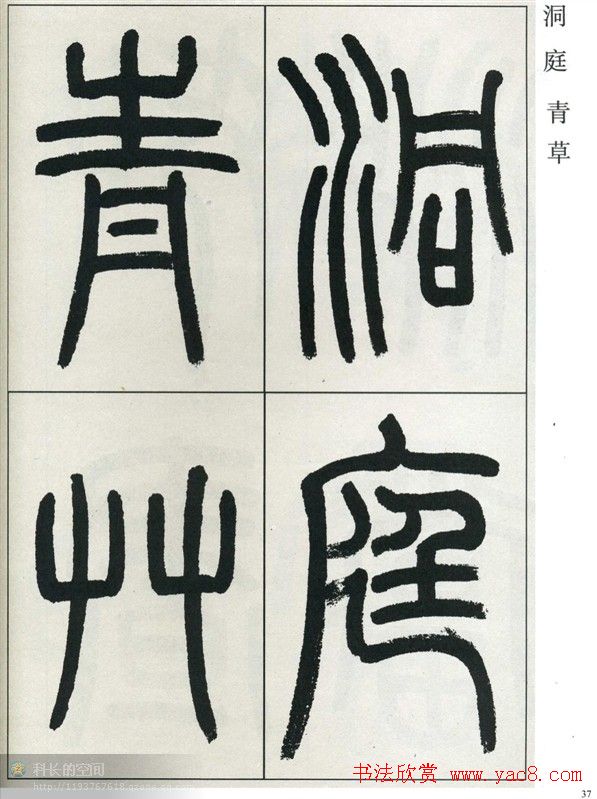 洞庭
青艸
洞庭青草
科长的空间
http://1193767618.qzone.qq.com
书法欣赏 www.yac8.com
37